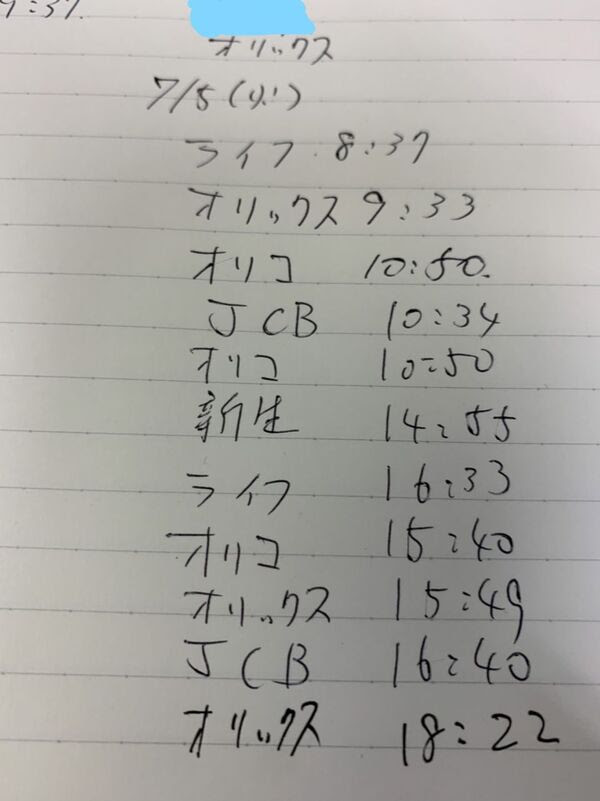 9:37.
オリックス
7/5(火)
ライフ 8:37
オリックス 9:33
オリコ 10:50.
JCB 10:34
オリコ 10:50
新生 14:55
ライフ 16:33
オリコ 15:40
オリックス 15:49
JCB 16:40
オリックス 18:22